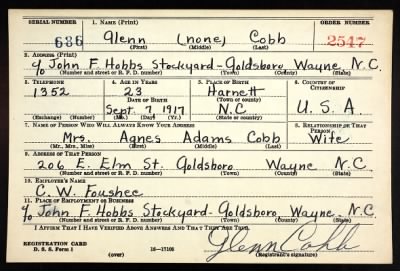 SERIAL NUMBER 1. NAME (Print) ORDER NUMBER
686 Glenn (none) Cobb 2547
(First) (Middle) (Last)
2. ADDRESS (Print)
c/o John F. Hobbs Stockyard-Goldsboro Wayne N.C.
(Number and street or R. F. D. number) (Town) (County) (State)
3. TELEPHONE 4. AGE IN YEARS 5. PLACE OF BIRTH 6. COUNTRY OF CITIZENSHIP
1352 23 Harnett
DATE OF BIRTH (Town or county)
Sept. 7 1917 N.C U.S.A.
(Exchange) (Number) (Mo.) (Day) (Yr.) (State or country)
7. NAME OF PERSON WHO WILL ALWAYS KNOW YOUR ADDRESS 8. RELATIONSHIP OF THAT PERSON
Mrs. Agnes Adams Cobb Wife
(Mr., Mrs., Miss) (First) (Middle) (Last)
9. ADDRESS OF THAT PERSON
206 E. Elm St. Goldsboro Wayne N.C
(Number and street or R. F. D. number) (Town) (County) (State)
10. EMPLOYER'S NAME
C. W. Foushee
11. PLACE OF EMPLOYMENT OR BUSINESS
c/o John F. Hobbs Stockyard-Goldsboro Wayne N.C.
(Number and street or R. F. D. number) (Town) (County) (State)
I AFFIRM THAT I HAVE VERIFIED ABOVE ANSWERS AND THAT THEY ARE TRUE.
REGISTRATION CARD
D. S. S. Form 1 (over) 16—17105 Glenn Cobb
(Registrant's signature)